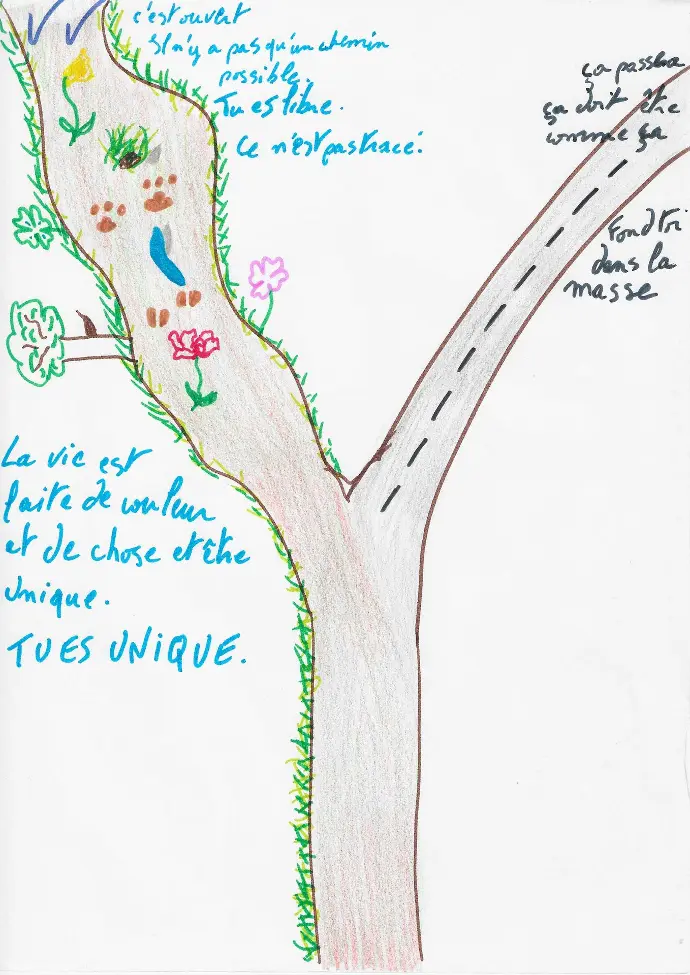 c'est ouvert
Il n'y a pas qu'un chemin
possible.
Tu es libre.
Ce n'est pas tracé.
ça passera
ça doit être
comme ça
Fond toi
dans la
masse
La vie est
faite de couleur
et de chose et être
unique.
TU ES UNIQUE.